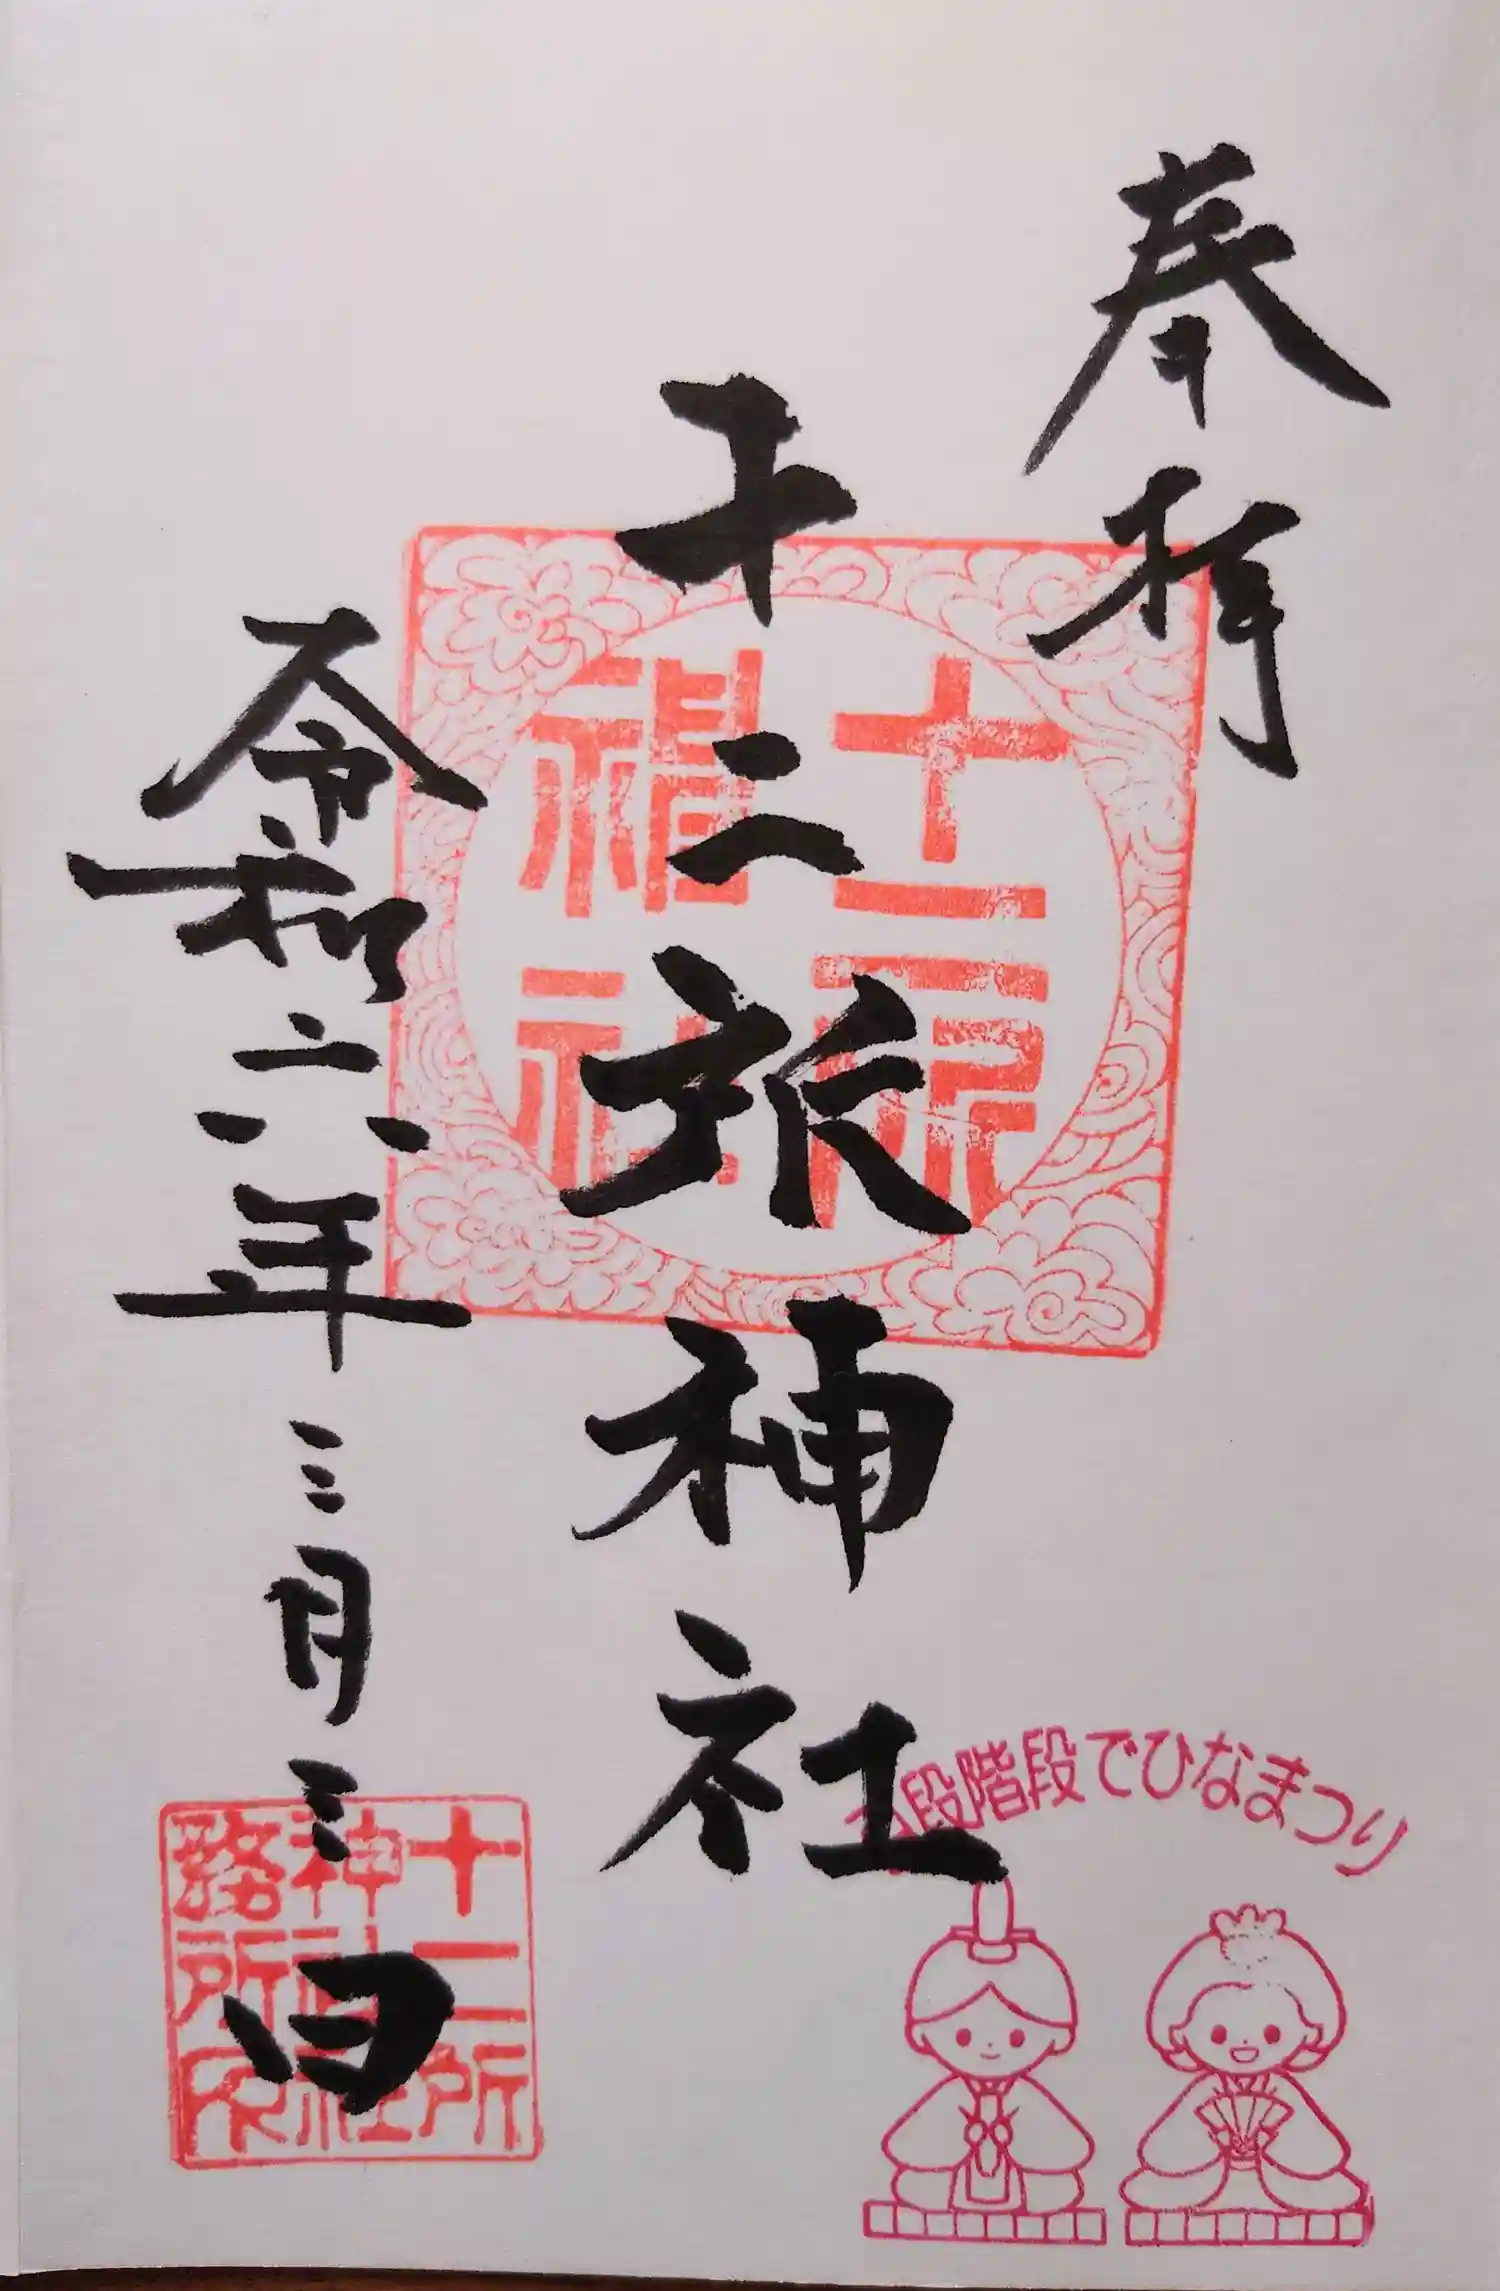 奉拝
十二所神社
令和六年三月三日
十二所
神社
十二所
神社社
務所印
段階段でひなまつり